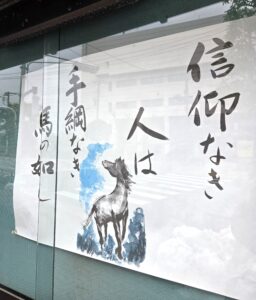 信仰なき
人は
手綱なき
馬の如し